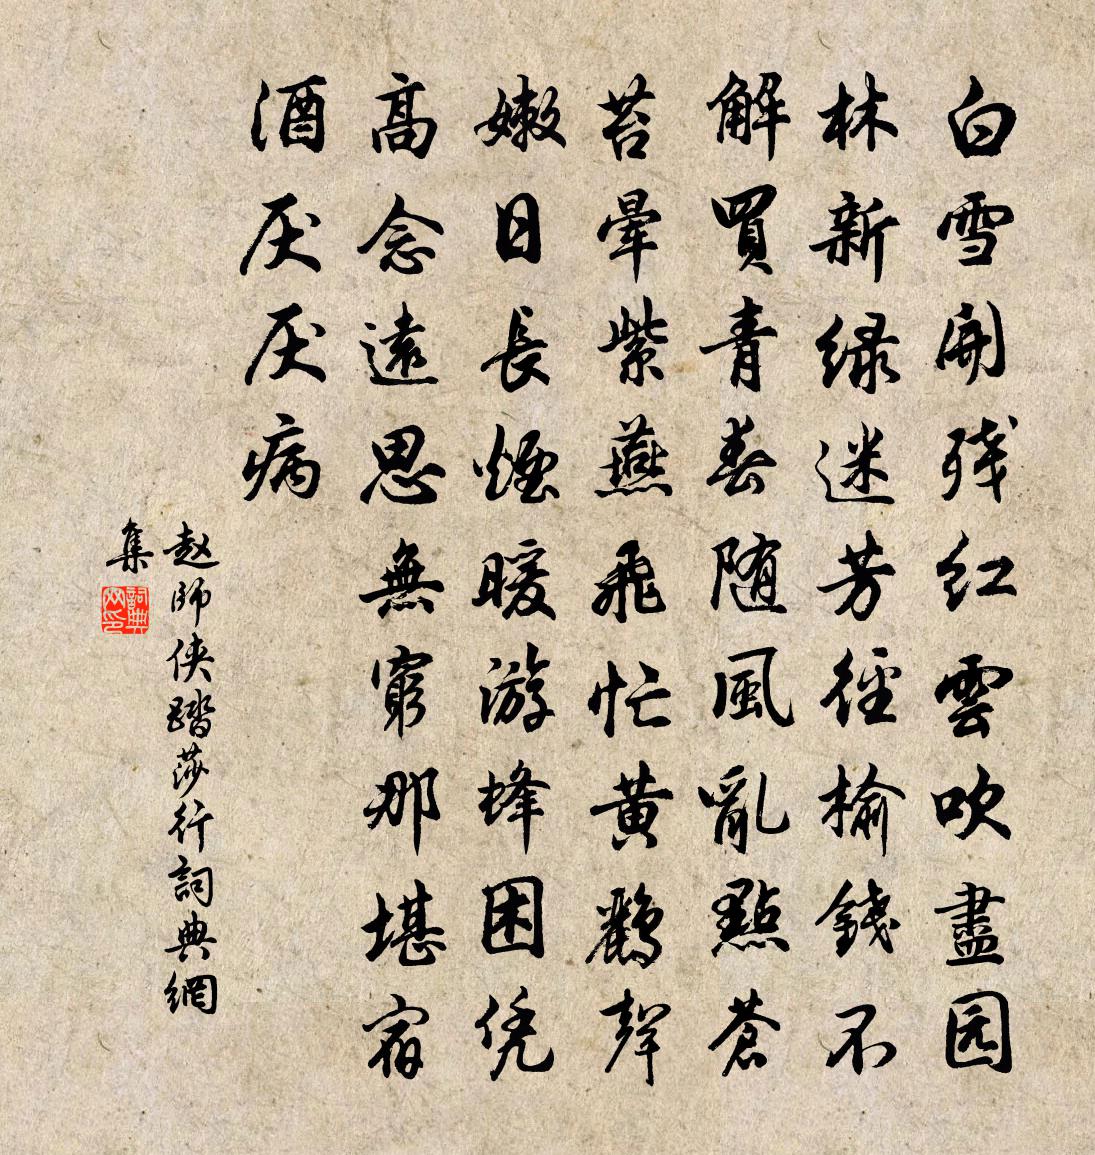 白雪開残红雲吹盡园
林新绿迷芳徑榆錢不
解買青春随風亂點蒼
苔暈紫燕飛忙黄鸝聲
嫩日長煙暖游蜂困凭
高念遠思無窮那堪宿
酒厌厌病
赵師侠踏莎行詞典網
集
詞典网印